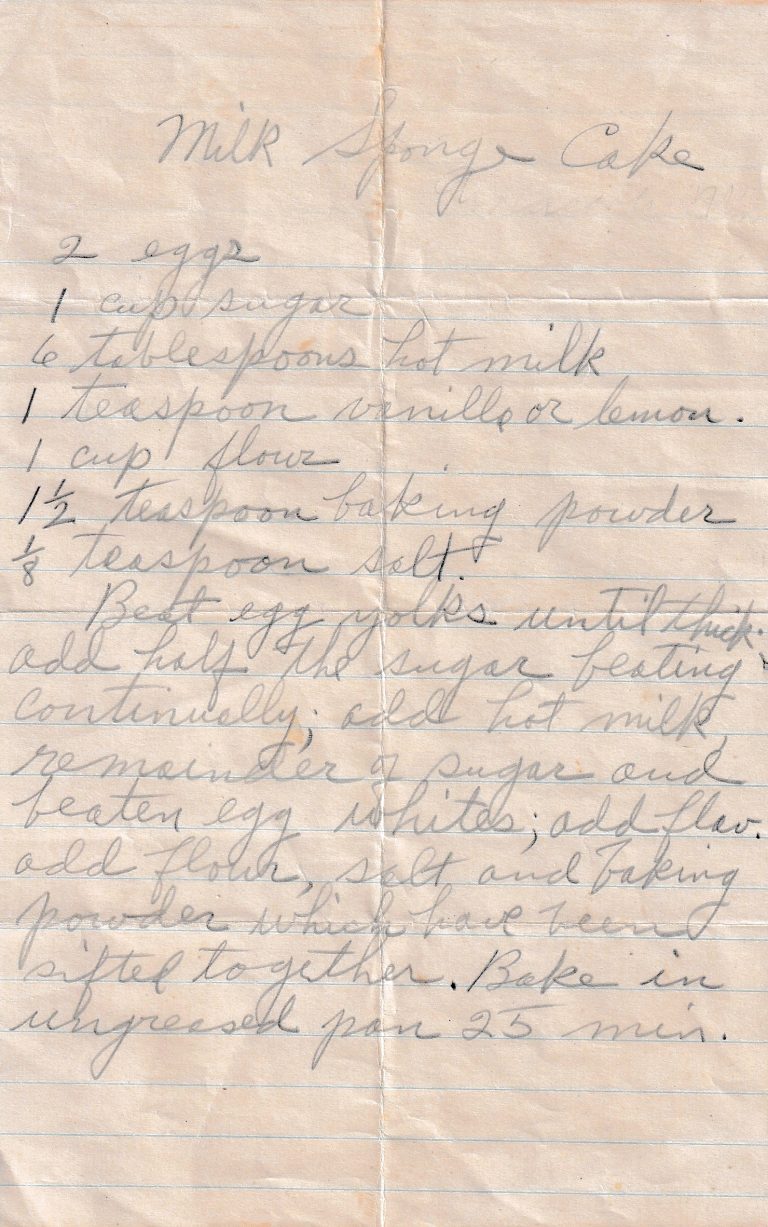 Milk Sponge Cake
2 eggs
1 cup sugar
6 tablespoons hot milk
1 teaspoon vanilla or lemon.
1 cup flour
1½ teaspoon baking powder
⅛ teaspoon salt.
Beat egg yolks until thick;
add half the sugar beating
continually; add hot milk,
remainder of sugar and
beaten egg whites; add flav.
add flour, salt and baking
powder which have been
sifted together. Bake in
ungreased pan 25 min.